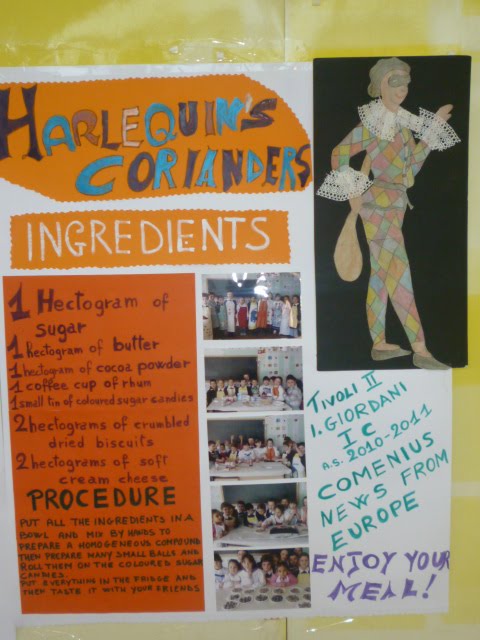 HARLEQUIN'S
CORIANDERS
INGREDIENTS
1 Hectogram of
sugar
1 hectogram of butter
1 hectogram of cocoa powder
1 coffee cup of rhum
1 small tin of coloured sugar candies
2 hectograms of crumbled
dried biscuits
2 hectograms of soft
cream cheese
PROCEDURE
PUT ALL THE INGREDIENTS IN A
BOWL AND MIX BY HANDS TO
PREPARE A HOMOGENEOUS COMPOUND
THEN PREPARE MANY SMALL BALLS AND
ROLL THEM ON THE COLOURED SUGAR
CANDIES.
PUT EVERYTHING IN THE FRIDGE AND
THEN TASTE IT WITH YOUR FRIENDS
TIVOLI II
I. GIORDANI
I C
A.S. 2010-2011
COMENIUS
NEWS FROM
EUROPE
ENJOY YOUR
MEAL!